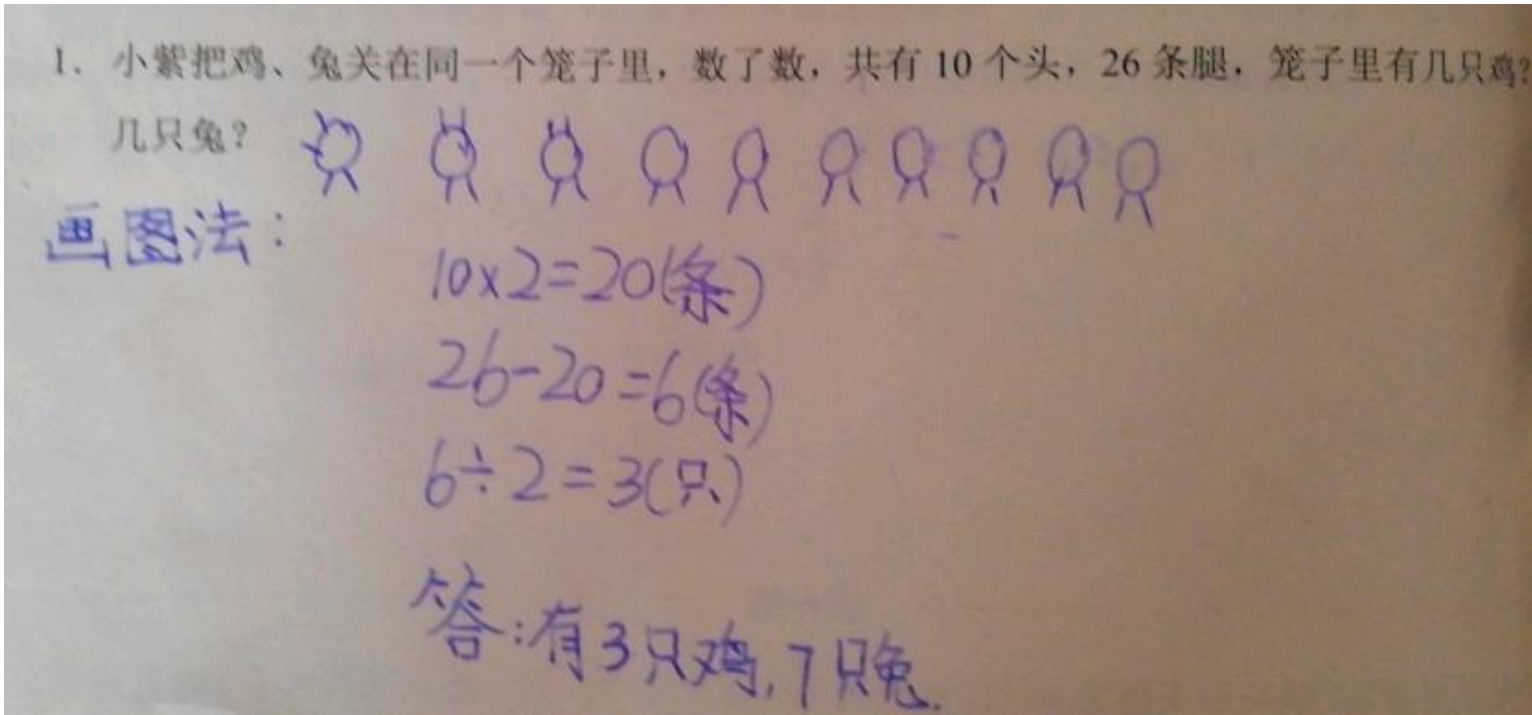 1. 小紫把鸡、兔关在同一个笼子里，数了数，共有 10 个头，26 条腿，笼子里有几只鸡？
几只兔？
画图法：
10×2=20(条)
26-20=6(条)
6÷2=3(只)
答:有3只鸡,7只兔.